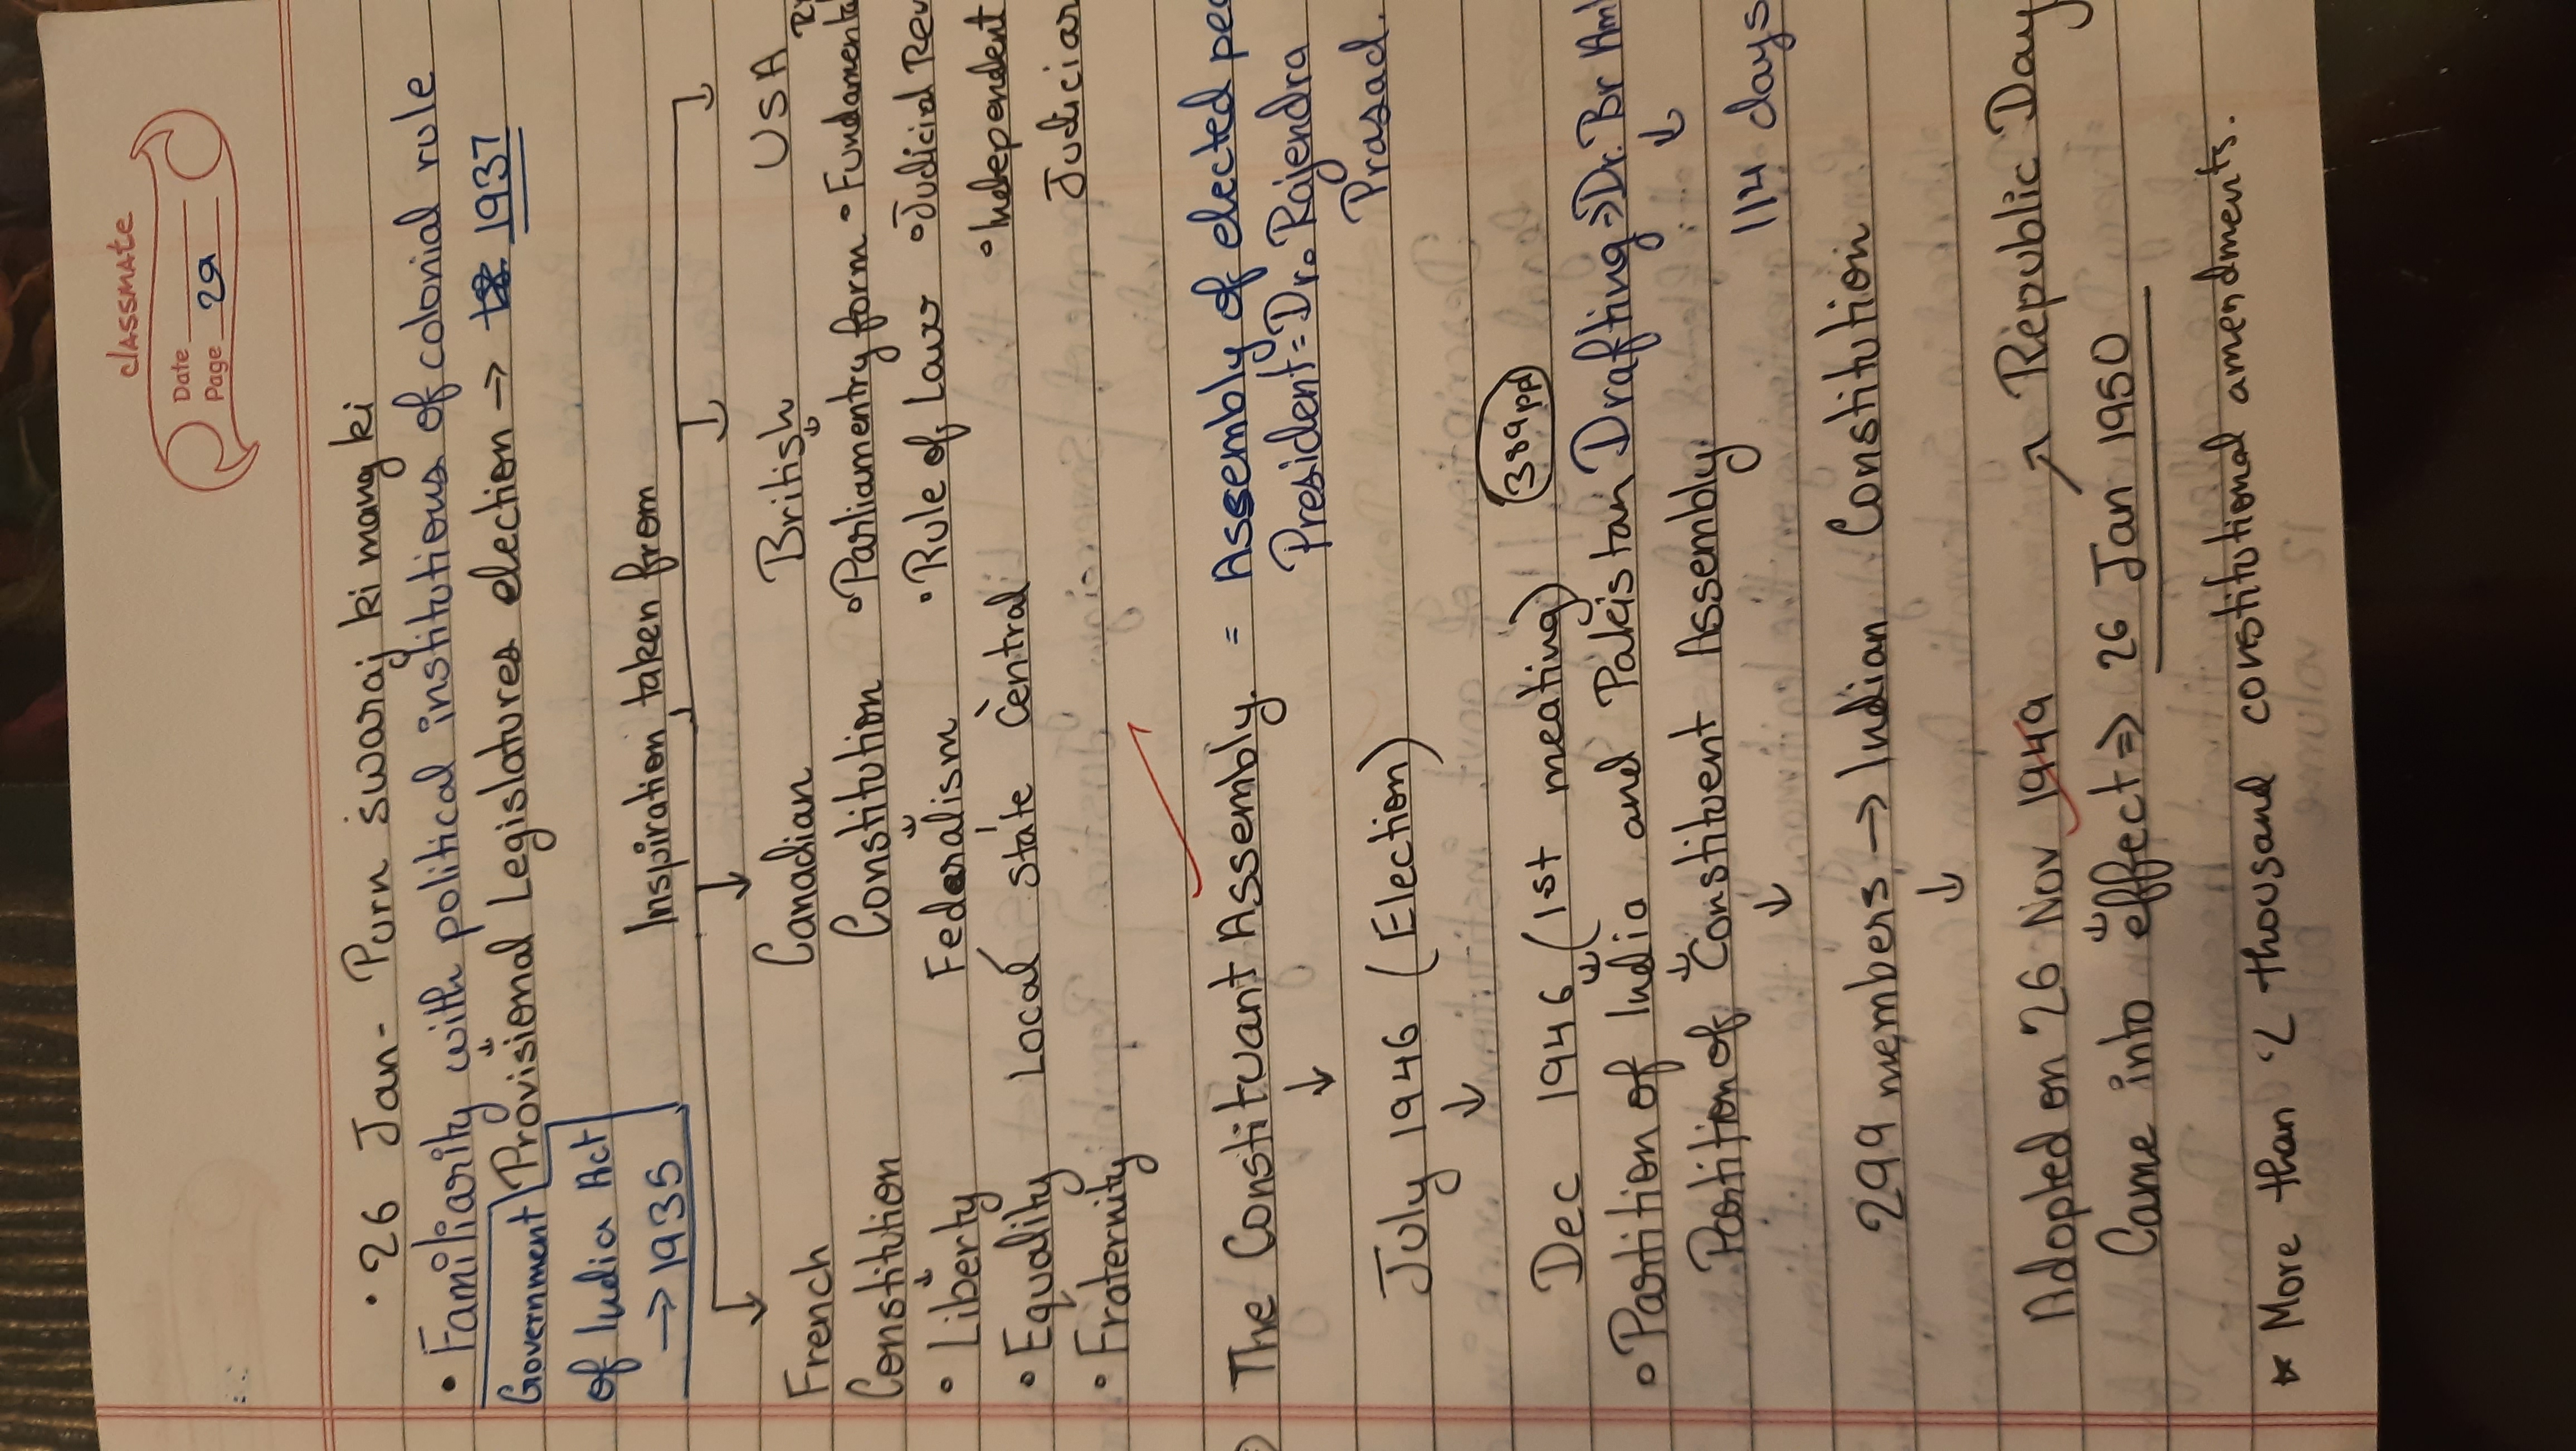 classmate
Date
Page 29
• 26 Jan - Purn swaraj ki mang ki
• Familiarity with political institutions of colonial rule
Provisional Legislatures election → 1937
Government
of India Act
→ 1935
Inspiration taken from
French Constitution
• Liberty
• Equality
• Fraternity
Canadian Constitution
Federalism
Local state central
British
• Parliamentry form
• Rule of Law
USA
• Fundamental
• Judicial Rev
• Independent
Judiciar
The Constituant Assembly = Assembly of elected peo
President = Dr. Rajendra
Prasad.
July 1946 (Election)
389 ppl
Dec 1946 (1st meating)
• Partition of India and Pakistan
Drafting ⇒ Dr. Br Am
114 days
Partition of Constituent Assembly
299 members → Indian Constitution
Adopted on 26 Nov 1949
Republic Day
Came into effect ⇒ 26 Jan 1950
* More than 2 thousand constitutional amendments.